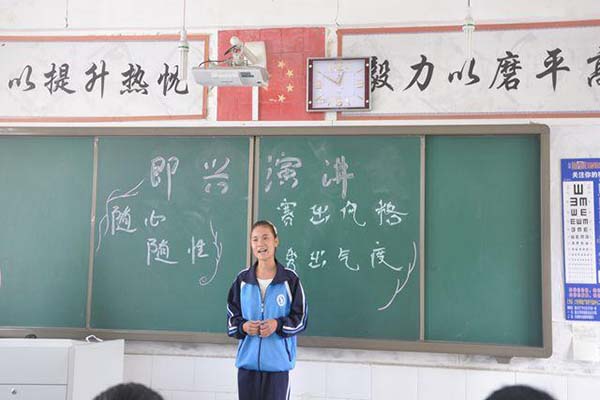 以提升热忱
毅力以磨平高
即兴演讲
随心
随性
赛出风格
秀出气度
关注你的